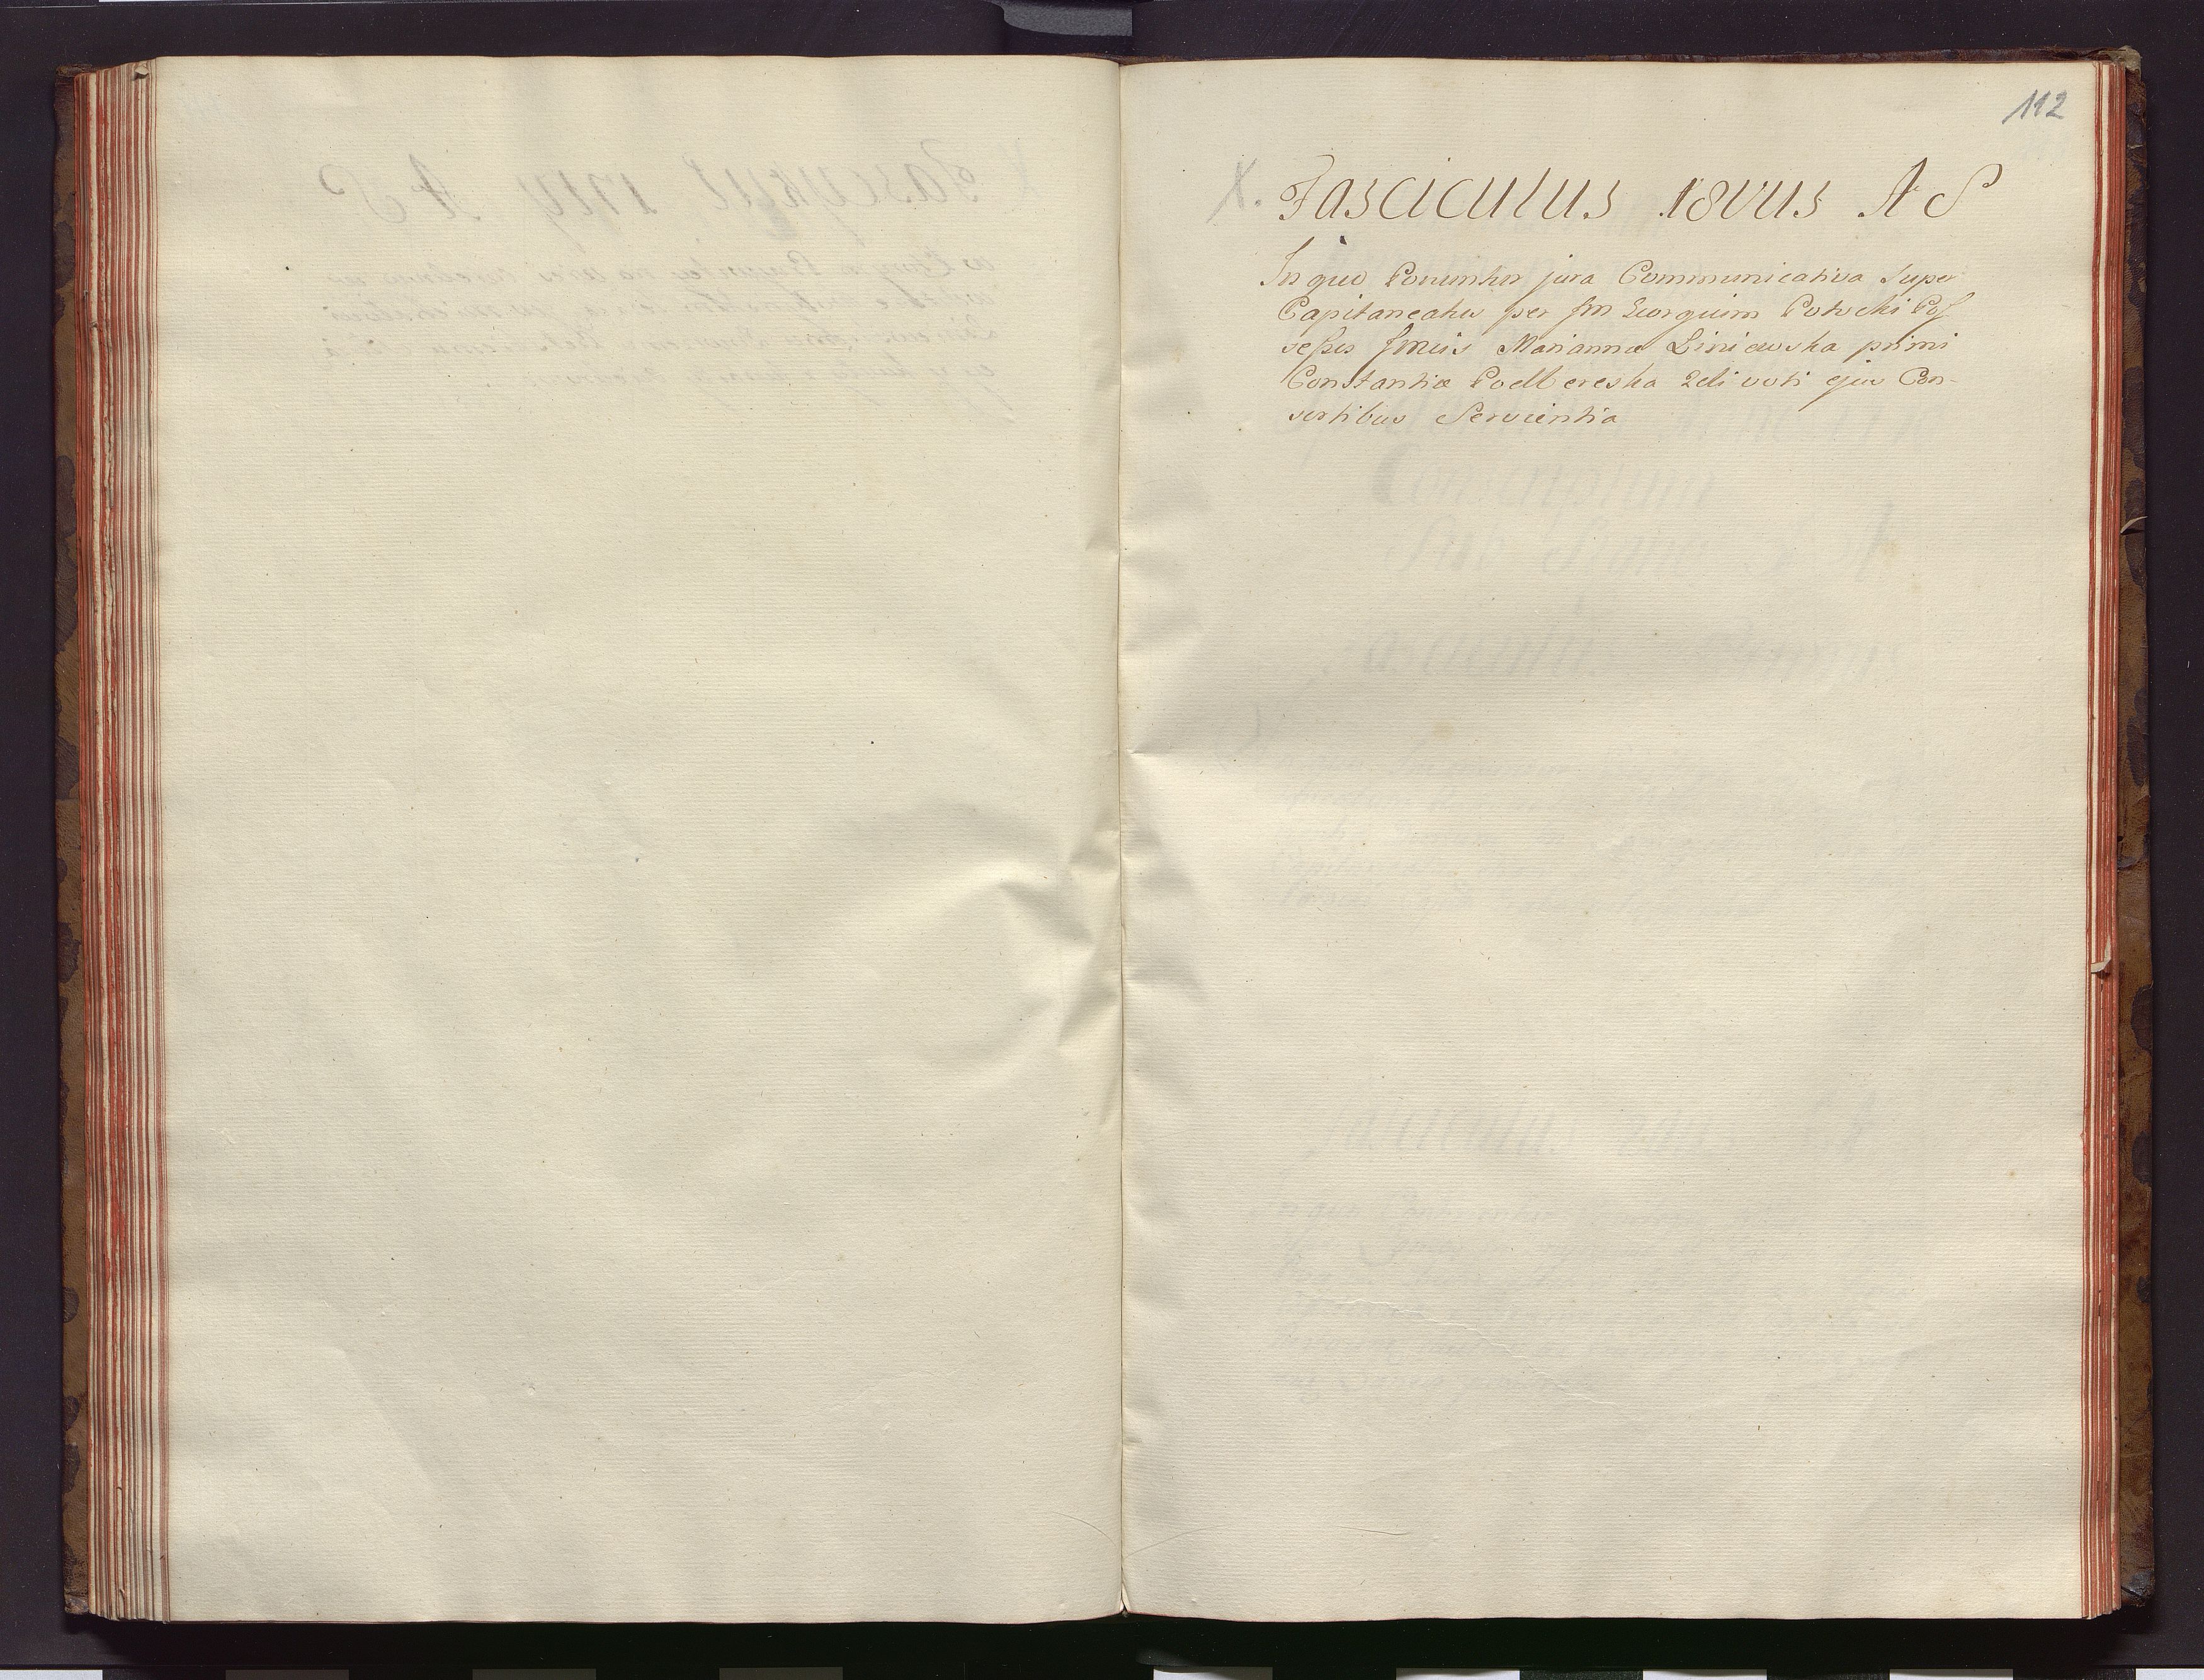 112
X. Fasciculus 18vus A S
In quo Ponuntur jura Communicativa Super
Capitaneatu per Jm Georgium Potocki Pos
sessis Jmeis Marianna Liniewska primi
Constantiæ Podbereska 2di voti ejus Con-
sortibus Servientia